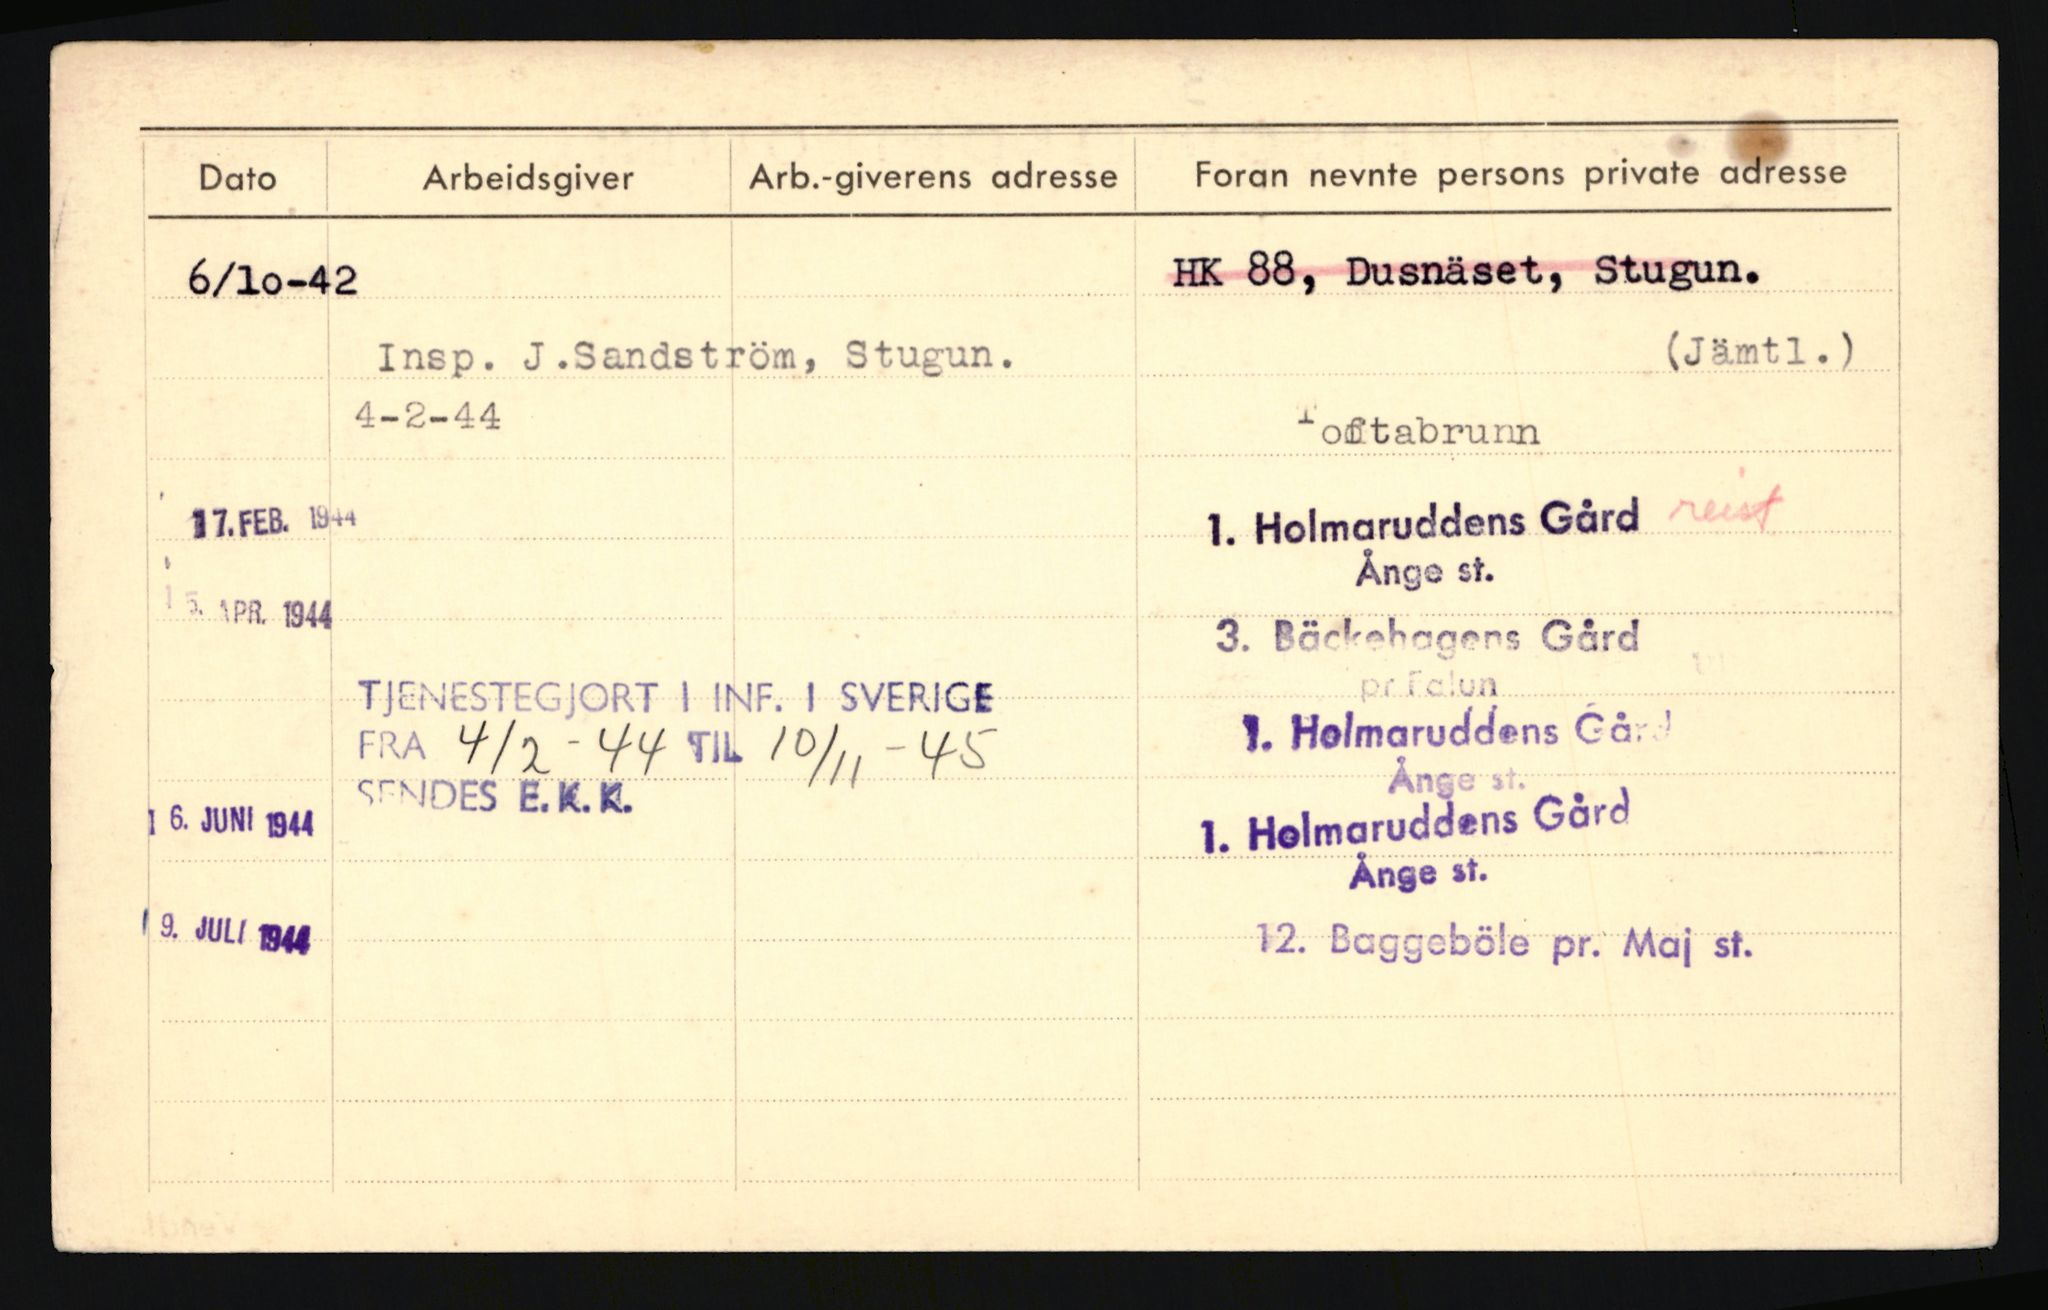 Dato Arbeidsgiver Arb.-giverens adresse Foran nevnte persons private adresse
6/10-42 HK 88, Dusnäset, Stugun.
Insp. J.Sandström, Stugun. (Jämtl.)
4-2-44 Toftabrunn
17. FEB. 1944 1. Holmaruddens Gård reist
Ånge st.
15. APR. 1944 3. Bäckehagens Gård
pr Falun
TJENESTEGJORT I INF. I SVERIGE
FRA 4/2-44 TIL 10/11-45 1. Holmaruddens Gård
Ånge st.
SENDES E.K.K.
16. JUNI 1944 1. Holmaruddens Gård
Ånge st.
19. JULI 1944 12. Baggeböle pr. Maj st.